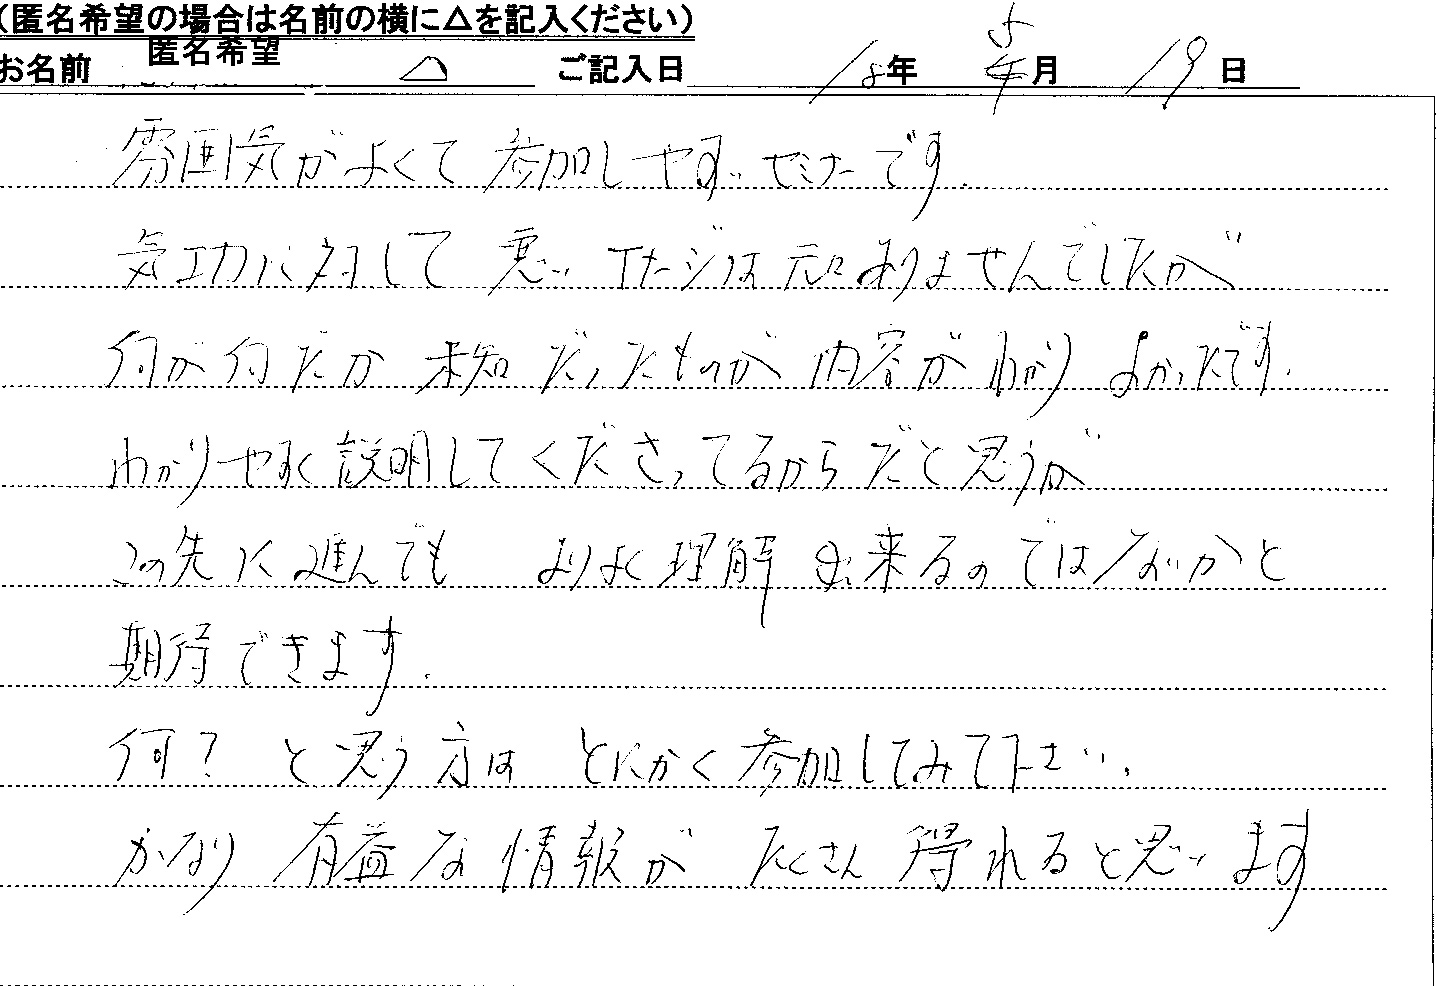 (匿名希望の場合は名前の横に△を記入ください)
お名前 匿名希望 △ ご記入日 18年 5月 19日
雰囲気がよくて参加しやすいセミナーです.
気功に対して悪いイメージは元々ありませんでしたが
何が何だか未知だったものが内容がわかりよかったです.
わかりやすく説明してくださってるからだと思うが
この先に進んでもよりよく理解出来るのではないかと
期待できます.
何？と思う方はとにかく参加してみて下さい.
かなり有益な情報がたくさん得れると思います